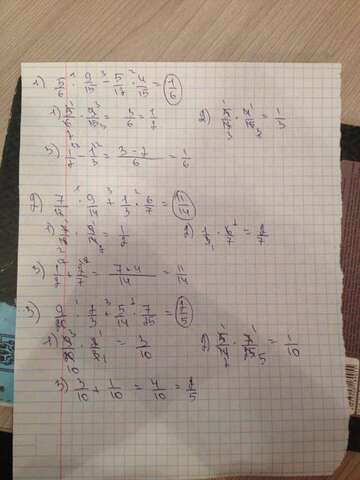 1) 5/6 · 9/15 - 5/12 · 4/15 = 1/6
1) 5/6 · 9/15 = 3/6 = 1/2
2) 5/12 · 4/15 = 1/3
3) 1/2 - 1/3 = 3-2/6 = 1/6
2) 7/9 · 9/14 + 1/3 · 6/7 = 11/14
= 1/2
2) 1/3 · 6/7 = 2/7
3) 1/2 + 2/7 = 7+4/14 = 11/14
3) · 7/3 + 5/14 · 7/25 =
= 3/10
2) 5/14 · 7/25 = 1/10
3) 3/10 + 1/10 = 4/10 = 2/5